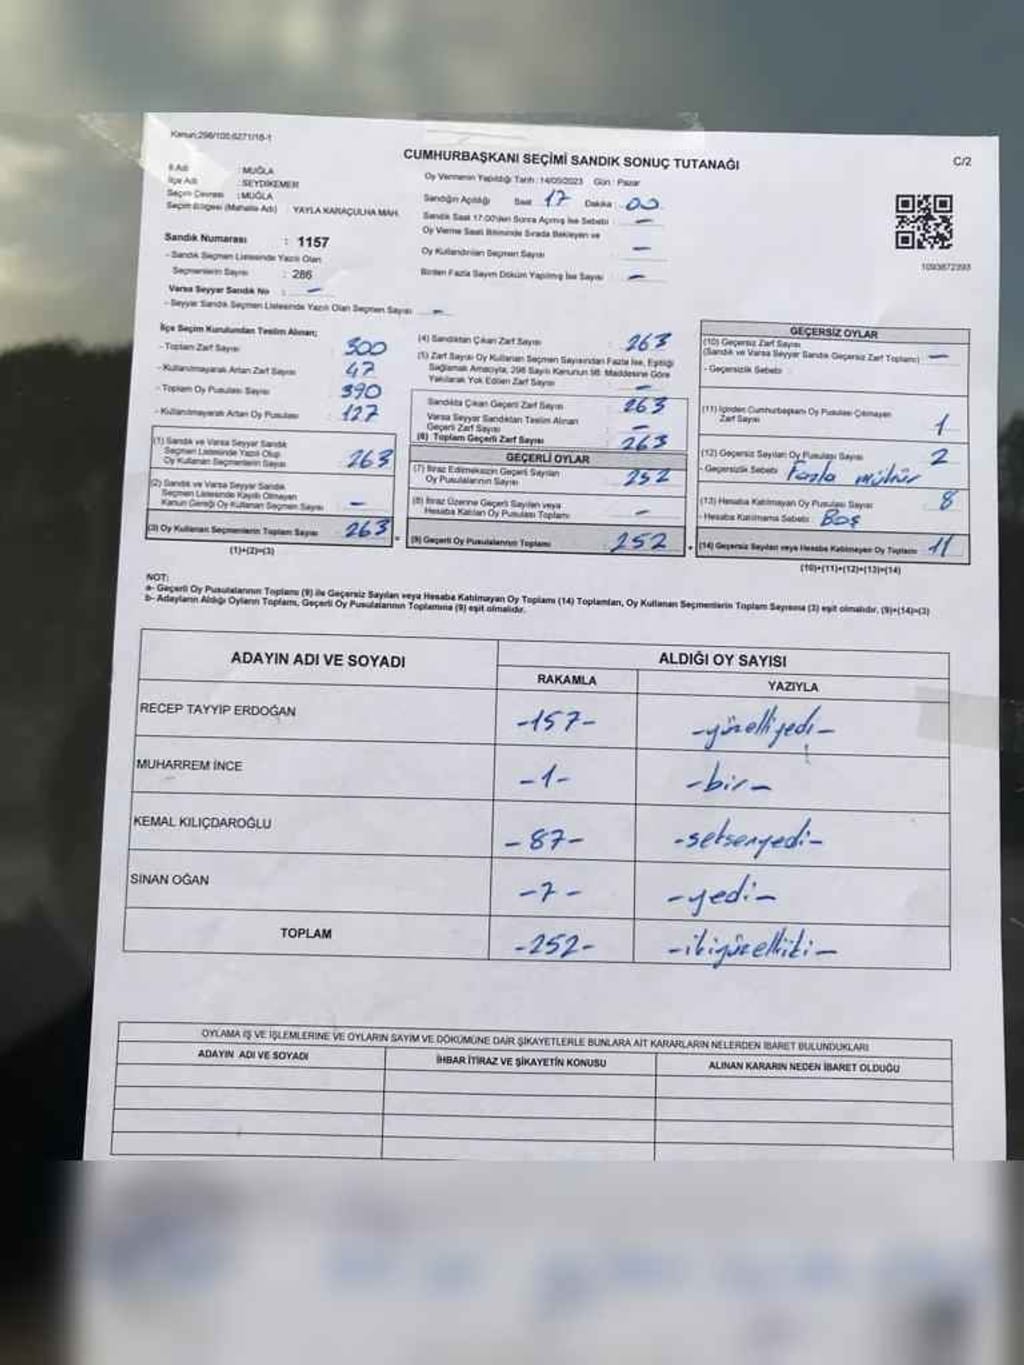 Kanun:298/105;6271/18-1
CUMHURBAŞKANI SEÇİMİ SANDIK SONUÇ TUTANAĞI
C/2
İl Adı : MUĞLA
İlçe Adı : SEYDİKEMER
Seçim Çevresi : MUĞLA
Seçim Bölgesi (Mahalle Adı) : YAYLA KARAÇULHA MAH.
Sandık Numarası : 1157
- Sandık Seçmen Listesinde Yazılı Olan
Seçmenlerin Sayısı : 286
Varsa Seyyar Sandık No : -
- Seyyar Sandık Seçmen Listesinde Yazılı Olan Seçmen Sayısı -
Oy Vermenin Yapıldığı Tarih : 14/05/2023 Gün : Pazar
Sandığın Açıldığı Saat 17 Dakika : 00
Sandık Saat 17.00'den Sonra Açılmış İse Sebebi : -
Oy Verme Saati Bitiminde Sırada Bekleyen ve
Oy Kullandırılan Seçmen Sayısı -
Birden Fazla Sayım Döküm Yapılmış İse Sayısı : -
1093672393
İlçe Seçim Kurulundan Teslim Alınan;
- Toplam Zarf Sayısı : 300
- Kullanılmayarak Artan Zarf Sayısı : 47
- Toplam Oy Pusulası Sayısı : 390
- Kullanılmayarak Artan Oy Pusulası : 127
(1) Sandık ve Varsa Seyyar Sandık
Seçmen Listesinde Yazılı Olup
Oy Kullanan Seçmenlerin Sayısı : 263
(2) Sandık ve Varsa Seyyar Sandık
Seçmen Listesinde Kayıtlı Olmayan
Kanun Gereği Oy Kullanan Seçmen Sayısı : -
(3) Oy Kullanan Seçmenlerin Toplam Sayısı : 263
(1)+(2)=(3)
(4) Sandıktan Çıkan Zarf Sayısı : 263
(5) Zarf Sayısı Oy Kullanan Seçmen Sayısından Fazla İse, Eşitliği
Sağlamak Amacıyla, 298 Sayılı Kanunun 98. Maddesine Göre
Yakılarak Yok Edilen Zarf Sayısı : -
Sandıkta Çıkan Geçerli Zarf Sayısı : 263
Varsa Seyyar Sandıktan Teslim Alınan
Geçerli Zarf Sayısı : -
(6) Toplam Geçerli Zarf Sayısı : 263
GEÇERLİ OYLAR
(7) İtiraz Edilmeksizin Geçerli Sayılan
Oy Pusulalarının Sayısı : 252
(8) İtiraz Üzerine Geçerli Sayılan veya
Hesaba Katılan Oy Pusulası Toplamı : -
(9) Geçerli Oy Pusulalarının Toplamı : 252
GEÇERSİZ OYLAR
(10) Geçersiz Zarf Sayısı
(Sandık ve Varsa Seyyar Sandık Geçersiz Zarf Toplamı) : -
- Geçersizlik Sebebi :
(11) İçinden Cumhurbaşkanı Oy Pusulası Çıkmayan
Zarf Sayısı : 1
(12) Geçersiz Sayılan Oy Pusulası Sayısı : 2
- Geçersizlik Sebebi : Fazla mühür
(13) Hesaba Katılmayan Oy Pusulası Sayısı : 8
- Hesaba Katılmama Sebebi : Boş
(14) Geçersiz Sayılan veya Hesaba Katılmayan Oy Toplamı : 11
(10)+(11)+(12)+(13)=(14)
NOT:
a- Geçerli Oy Pusulalarının Toplamı (9) ile Geçersiz Sayılan veya Hesaba Katılmayan Oy Toplamı (14) Toplamları, Oy Kullanan Seçmenlerin Toplam Sayısına (3) eşit olmalıdır. (9)+(14)=(3)
b- Adayların Aldığı Oyların Toplamı, Geçerli Oy Pusulalarının Toplamına (9) eşit olmalıdır.
ADAYIN ADI VE SOYADI
ALDIĞI OY SAYISI
RAKAMLA
YAZIYLA
RECEP TAYYİP ERDOĞAN -157- -yüzelliyedi-
MUHARREM İNCE -1- -bir-
KEMAL KILIÇDAROĞLU -87- -seksenyedi-
SİNAN OĞAN -7- -yedi-
TOPLAM -252- -ikiyüzelliiki-
OYLAMA İŞ VE İŞLEMLERİNE VE OYLARIN SAYIM VE DÖKÜMÜNE DAİR ŞİKAYETLERLE BUNLARA AİT KARARLARIN NELERDEN İBARET BULUNDUKLARI
ADAYIN ADI VE SOYADI
İHBAR İTİRAZ VE ŞİKAYETİN KONUSU
ALINAN KARARIN NEDEN İBARET OLDUĞU